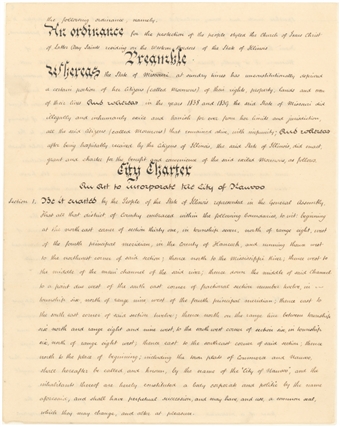 the following ordinance, namely.
An ordinance for the protection of the people styled the Church of Jesus Christ
of Latter Day Saints residing on the Western Borders of the State of Illinois.
Preamble
Whereas the State of Missouri at sundry times has unconstitutionally deprived
a certain portion of her Citizens (called Mormons) of their rights, property, and some
of their lives And whereas in the years 1838 and 1839, the said State of Missouri did
illegally and inhumanly exile and banish for ever from her limits and jurisdiction
all the said Citizens (called Mormons) that remained alive, with impunity; And whereas
after being hospitably received by the Citizens of Illinois, the said State of Illinois, did
grant and charter for the benefit and convenience of the said exiled Mormons, as follows.
City Charter
An Act to incorporate the City of Nauvoo
Section 1. Be it enacted by the People of the State of Illinois represented in the General Assembly,
That all that district of Country embraced within the following boundaries, to wit: beginning
at the north east corner of section thirty one, in township seven, north of range eight, west
of the fourth principal meridian, in the County of Hancock, and running thence west
to the northwest corner of said section; thence north to the Mississippi River; thence west to
the middle of the main channel of the said river; thence down the middle of said channel
to a point due west of the south east corner of fractional section number twelve, in
township six, north of range nine west of the fourth principal meridian; thence east to
the south east corner of said section twelve; thence north on the range line between township
six north and range eight and nine west, to the south west corner of section six, in township
six, north of range eight west; thence east to the southeast corner of said section; thence
north to the place of beginning; including the town plats of Commerce and Nauvoo,
shall hereafter be called and known, by the name of the "City of Nauvoo", and the
inhabitants thereof are hereby constituted a body corporate and politic by the name
aforesaid, and shall have perpetual succession, and may have, and use, a common seal,
which they may change, and alter at pleasure.